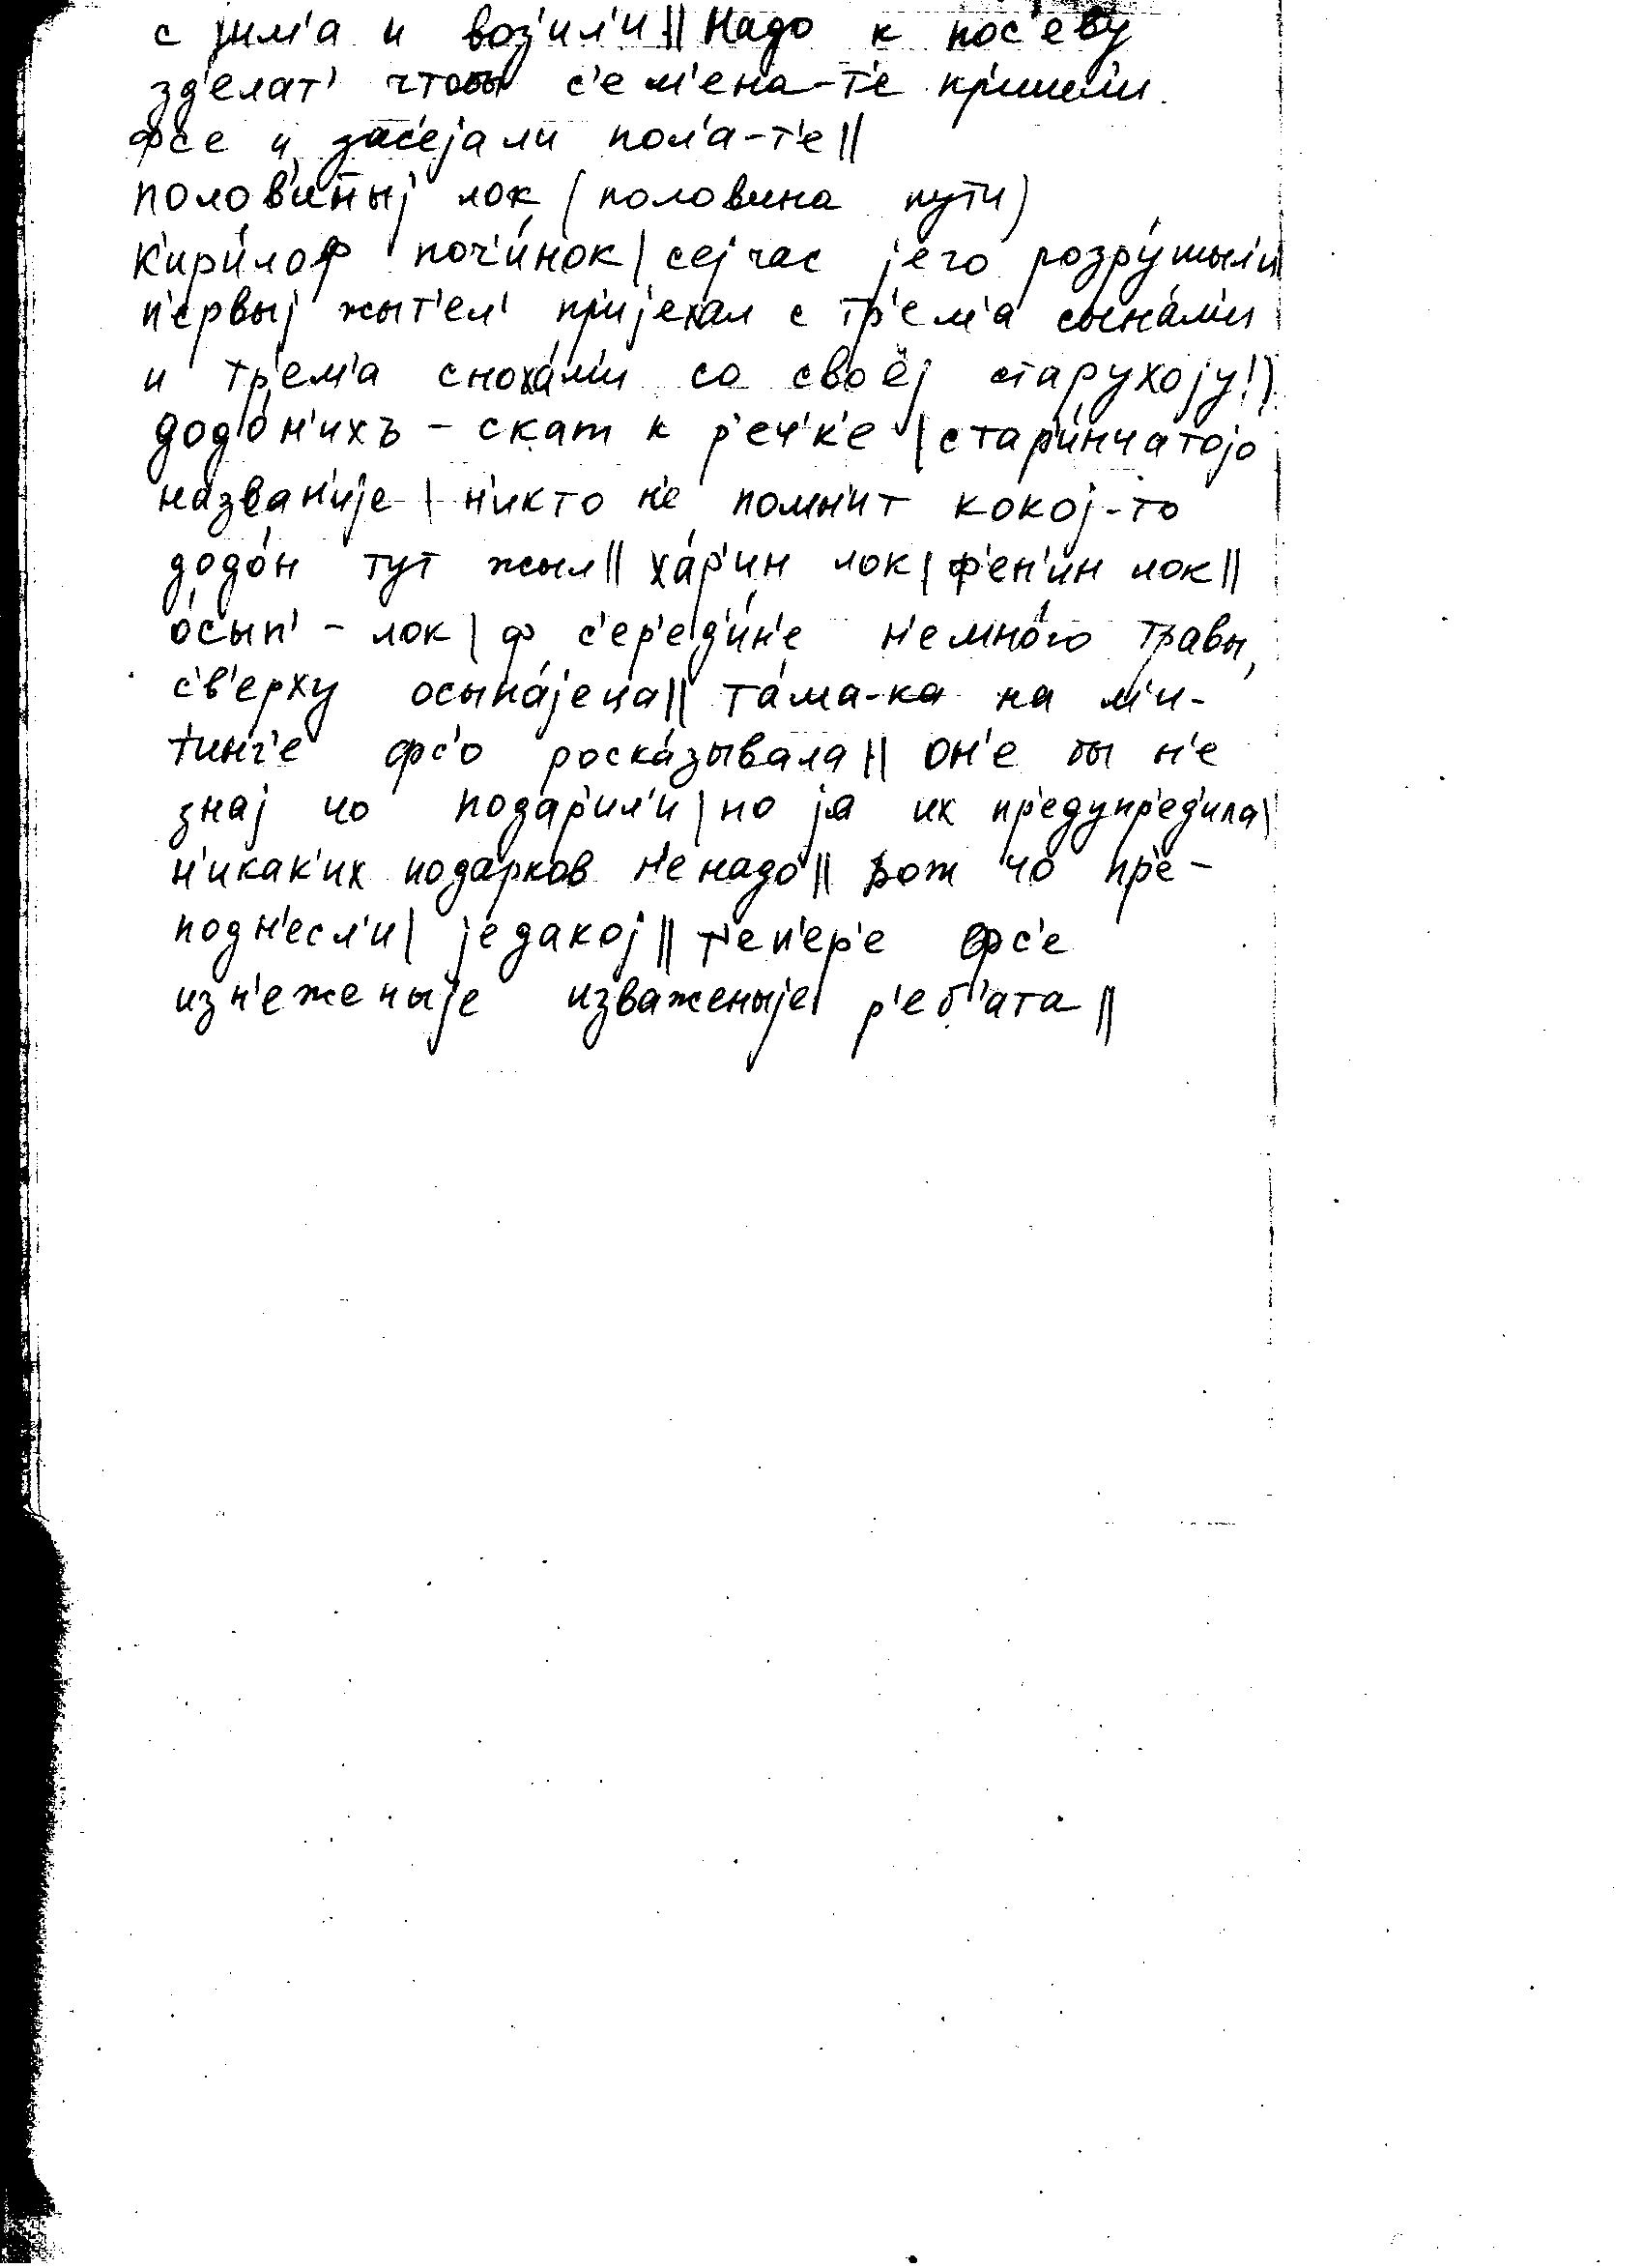 с јим'а и воз'ил'и || Надо к пос'еву
зд'елат' чтобы с'ем'ена-т'е пришли
фс'е и зас'ејали пол'а-т'е ||
полов'иный лок (половина пути)
к'ири́лоф поч'и́нок | сејчас јего розру́шыл'и
п'ервыј жыт'ел' пр'ијехал с тр'ем'а сына́м'и
и тр'ем'а сноха́м'и со своёј старухоју!)
додо́н'ихъ – скат к р'еч'к'е | стари́нчатојо
назван'ије | н'икто н'е помн'ит кокој-то
додо́н тут жыл || ха́р'ин лок | ф'ен'ин лок ||
о́сып' – лок | ф с'ер'ед'и́н'е н'емно́го травы,
с'в'ерху осыпа́јеца || та́ма-ка на м'и-
тинг'е фс'о роска́зывала || он'е бы н'е
знај чо подар'ил'и | но ја их пр'едупр'ед'ила |
н'икак'их подарков н'е надо || вож чо пр'е-
подн'есл'и | једакој || т'еп'ер'е фс'е
изн'еженыје изваженыје р'еб'ата ||